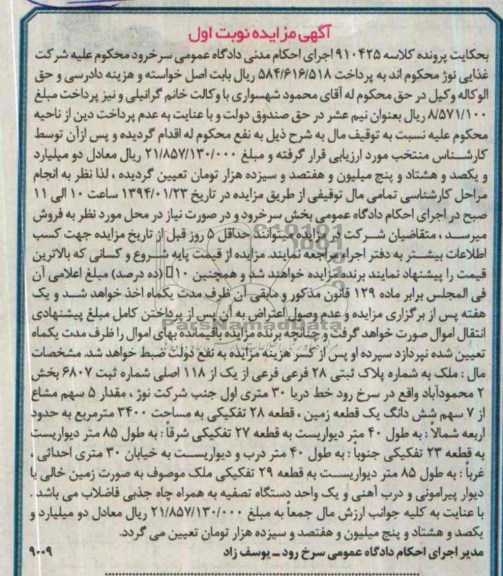 آگهی مزایده نوبت اول
بحکایت پرونده کلاسه ۹۱۰۴۲۵ اجرای احکام مدنی دادگاه عمومی سرخرود محکوم علیه شرکت
غذایی نوژ محکوم اند به پرداخت ۵۸۴/۶۱۶/۵۱۸ ریال بابت اصل خواسته و هزینه دادرسی و حق
الوکاله وکیل در حق محکوم له آقای محمود شهسواری با وکالت خانم گرائیلی و نیز پرداخت مبلغ
۸/۵۷۱/۱۰۰ ریال بعنوان نیم عشر در حق صندوق دولت و با عنایت به عدم پرداخت دین از ناحیه
محکوم علیه نسبت به توقیف مال به شرح ذیل به نفع محکوم له اقدام گردیده و پس ازآن توسط
کارشناس منتخب مورد ارزیابی قرار گرفته و مبلغ ۲۱/۸۵۷/۱۳۰/۰۰۰ ریال معادل دو میلیارد
و یکصد و هشتاد و پنج میلیون و هفتصد و سیزده هزار تومان تعیین گردیده ، لذا نظر به انجام
مراحل کارشناسی تمامی مال توقیفی از طریق مزایده در تاریخ ۱۳۹۴/۰۱/۲۳ ساعت ۱۰ الی ۱۱
صبح در اجرای احکام دادگاه عمومی بخش سرخرود و در صورت نیاز در محل مورد نظر به فروش
میرسد ، متقاضیان شرکت در مزایده میتوانند حداقل ۵ روز قبل از تاریخ مزایده جهت کسب
اطلاعات بیشتر به دفتر اجرا مراجعه نمایند. مزایده از قیمت پایه شروع و کسانی که بالاترین
قیمت را پیشنهاد نمایند برنده مزایده خواهند شد و همچنین ۱۰٪ (ده درصد) مبلغ اعلامی آن
فی المجلس برابر ماده ۱۲۹ قانون مذکور و مابقی آن ظرف مدت یکماه اخذ خواهد شد و یک
هفته پس از برگزاری مزایده و عدم وصول اعتراض به آن پس از پرداختن کامل مبلغ پیشنهادی
انتقال اموال صورت خواهد گرفت و چنانچه برنده مزایده باقیمانده بهای اموال را ظرف مدت یکماه
تعیین شده نپردازد سپرده او پس از کسر هزینه مزایده به نفع دولت ضبط خواهد شد. مشخصات
مال : ملک به شماره پلاک ثبتی ۲۸ فرعی فرعی از یک از ۱۱۸ اصلی شماره ثبت ۶۸۰۷ بخش
۲ محمودآباد واقع در سرخ رود خط دریا ۳۰ متری اول جنب شرکت نوژ ، مقدار ۵ سهم مشاع
از ۷ سهم شش دانگ یک قطعه زمین ، قطعه ۲۸ تفکیکی به مساحت ۳۴۰۰ مترمربع به حدود
اربعه شمالاً : به طول ۴۰ متر دیواریست به قطعه ۲۷ تفکیکی شرقاً : به طول ۸۵ متر دیواریست
به قطعه ۲۳ تفکیکی جنوباً : به طول ۴۰ متر درب و دیواریست به خیابان ۳۰ متری احداثی ،
غرباً : به طول ۸۵ متر دیواریست به قطعه ۲۹ تفکیکی ملک موصوف به صورت زمین خالی با
دیوار پیرامونی و درب آهنی و یک واحد دستگاه تصفیه به همراه چاه جذبی فاضلاب می باشد .
با عنایت به کلیه جوانب ارزش مال جمعاً به مبلغ ۲۱/۸۵۷/۱۳۰/۰۰۰ ریال معادل دو میلیارد و
یکصد و هشتاد و پنج میلیون و هفتصد و سیزده هزار تومان تعیین می گردد.
مدیر اجرای احکام دادگاه عمومی سرخ رود ــ یوسف زاد ۹۰۰۹
ParsNamadData